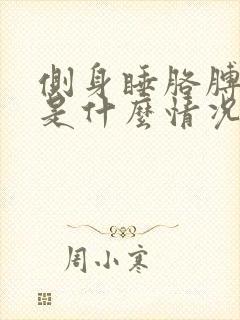 側身睡胳膊
是什麼情況
周小寒